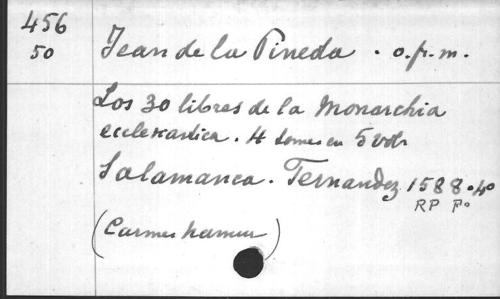 456
50
Jean de la Pineda . o.fr.m.
Los 30 libres de la Monarchia
ecclesiastica . 4 tomes en 5 vols
Salamanca . Fernandez 1588 . 4o
RP Fo
(Carmes Namur)